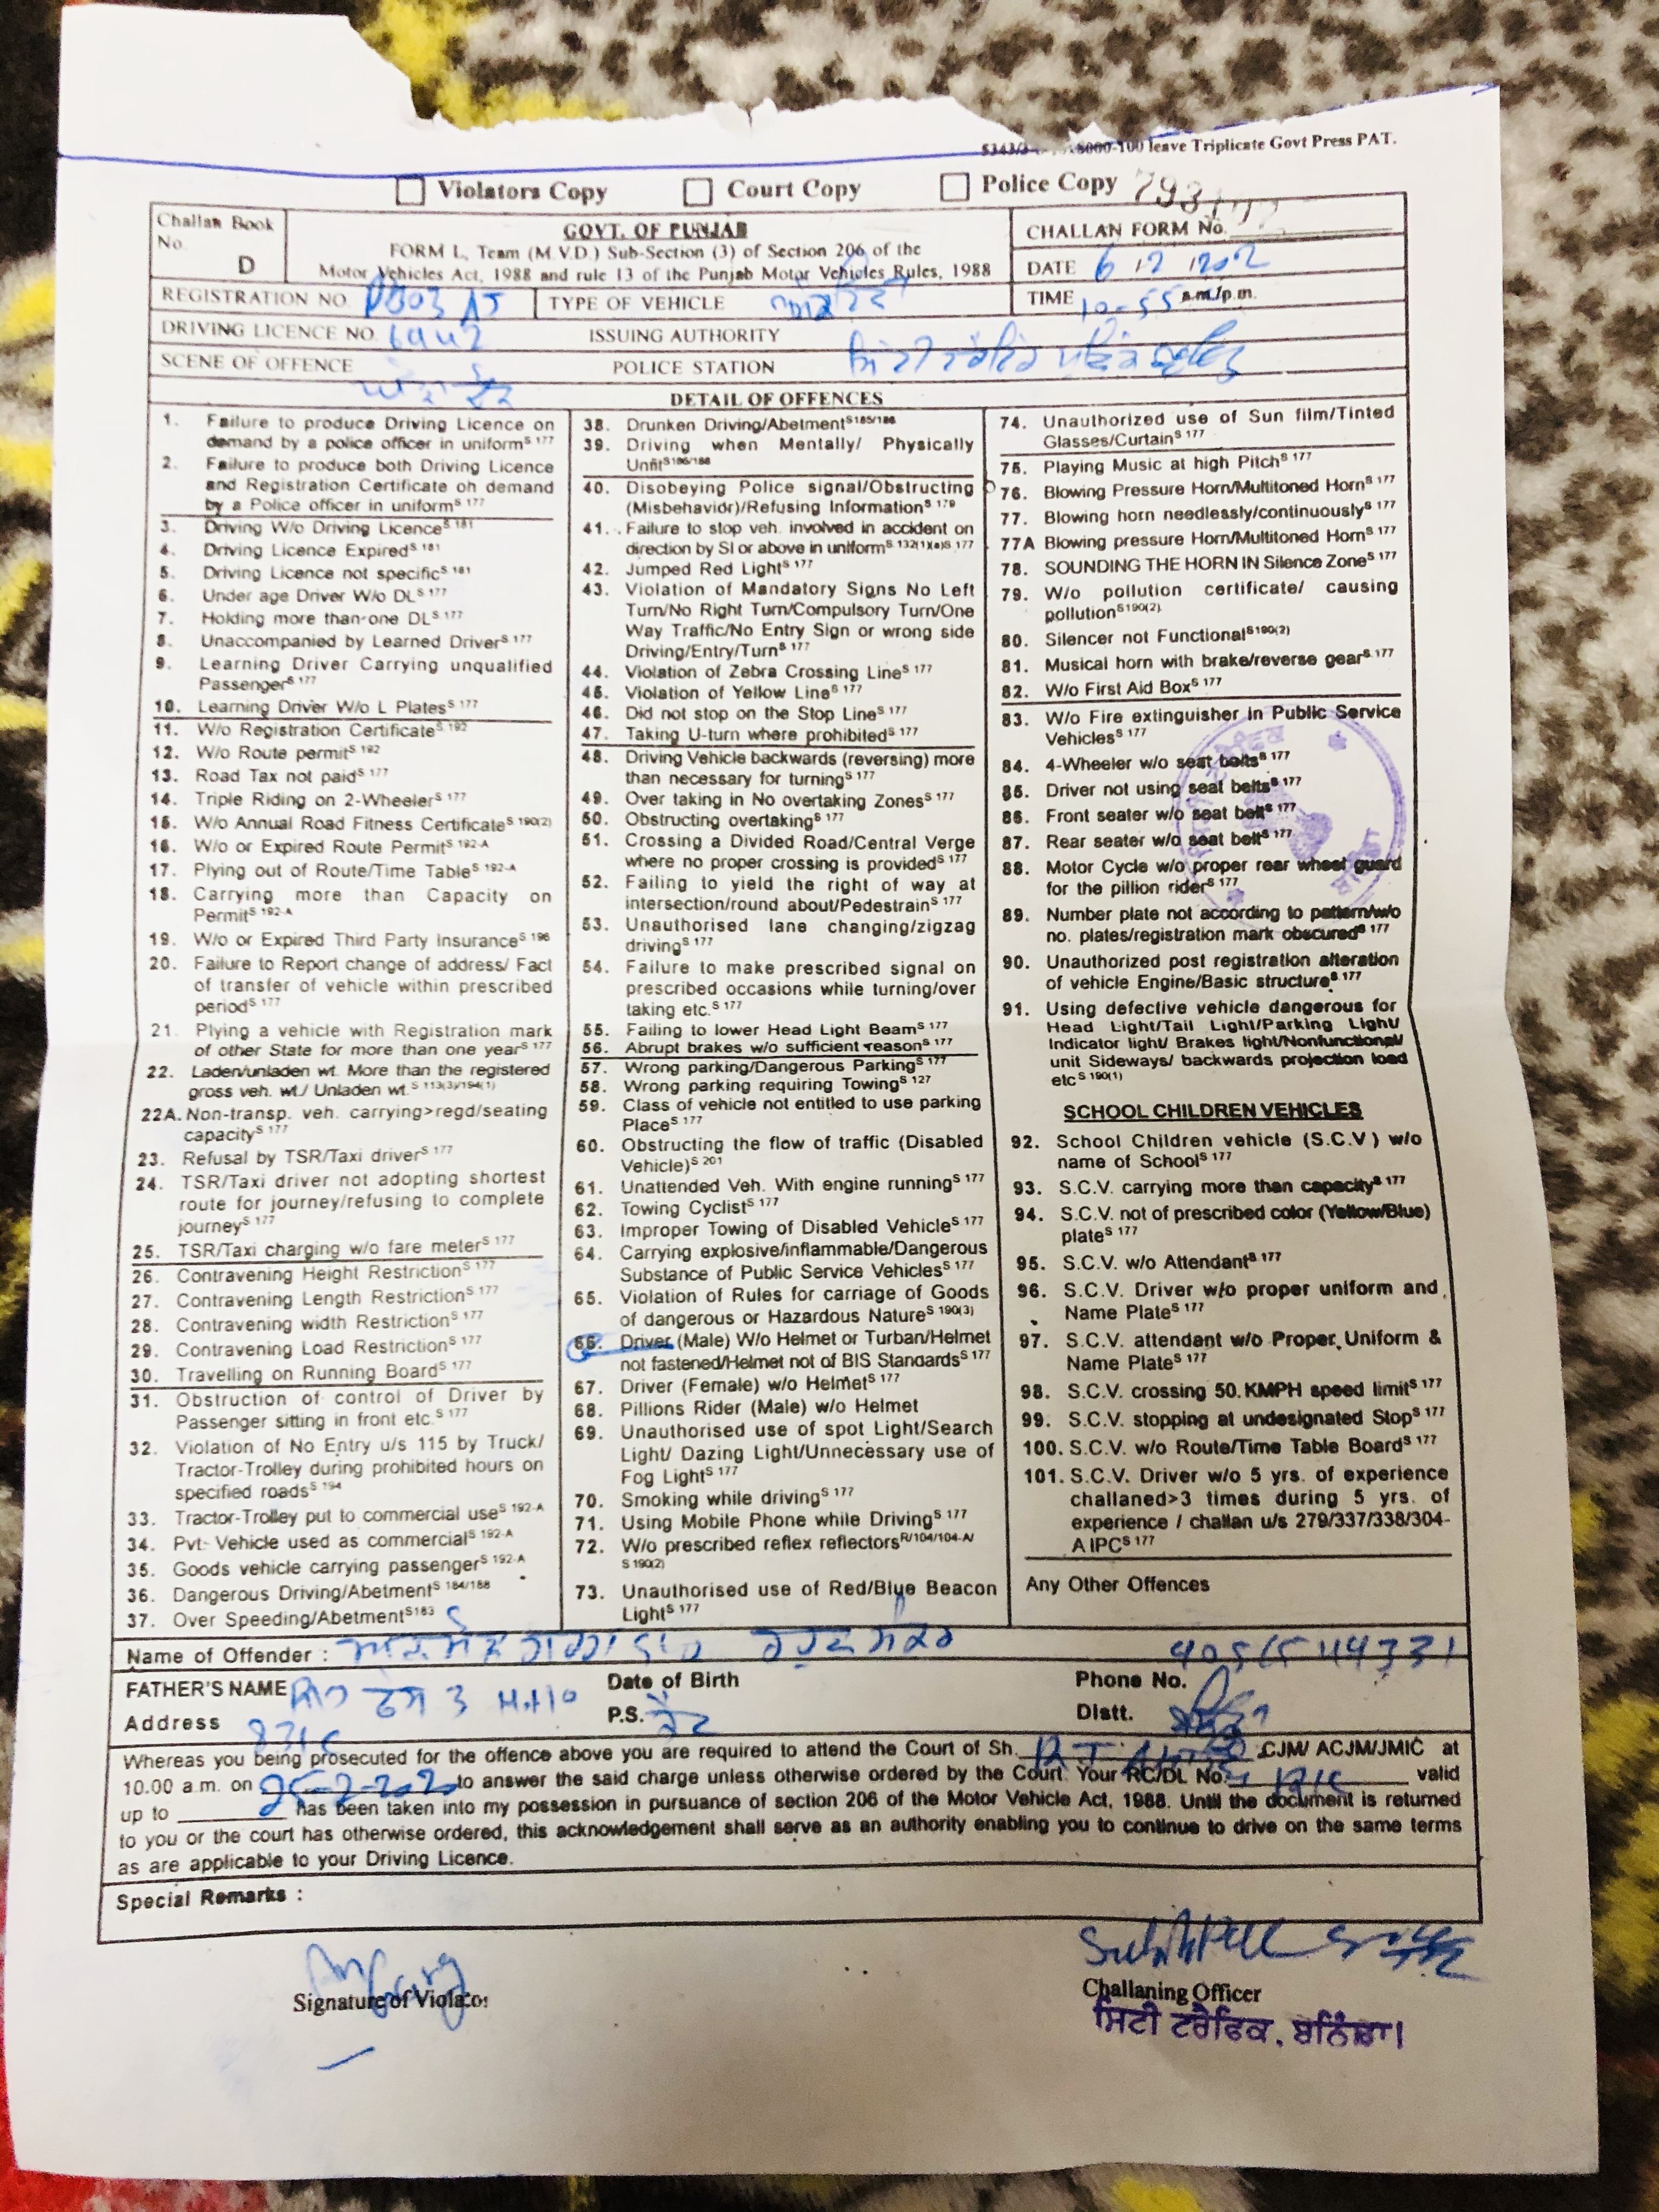 leave Triplicate Govt Press PAT.
Violators Copy Court Copy Police Copy
Challan Book No. D
GOVT. OF PUNJAB
FORM I, Team (M.V.D.) Sub-Section (3) of Section 206 of the
Motor Vehicles Act, 1988 and rule 13 of the Punjab Motor Vehicles Rules, 1988
CHALLAN FORM No.
DATE 6
TIME 10-55 a.m./p.m.
REGISTRATION NO. PB03 AJ TYPE OF VEHICLE
DRIVING LICENCE NO. ISSUING AUTHORITY
SCENE OF OFFENCE POLICE STATION
DETAIL OF OFFENCES
1. Failure to produce Driving Licence on
demand by a police officer in uniform S 177
2. Failure to produce both Driving Licence
and Registration Certificate oh demand
by a Police officer in uniform S 177
3. Driving W/o Driving Licence S 181
4. Driving Licence Expired S 181
5. Driving Licence not specific S 181
6. Under age Driver W/o DL S 177
7. Holding more than-one DL S 177
8. Unaccompanied by Learned Driver S 177
9. Learning Driver Carrying unqualified
Passenger S 177
10. Learning Driver W/o L Plates S 177
11. W/o Registration Certificate S 192
12. W/o Route permit S 192
13. Road Tax not paid S 177
14. Triple Riding on 2-Wheeler S 177
15. W/o Annual Road Fitness Certificate S 190(2)
16. W/o or Expired Route Permit S 192-A
17. Plying out of Route/Time Table S 192-A
18. Carrying more than Capacity on
Permit S 192-A
19. W/o or Expired Third Party Insurance S 196
20. Failure to Report change of address/ Fact
of transfer of vehicle within prescribed
period S 177
21. Plying a vehicle with Registration mark
of other State for more than one year S 177
22. Laden/unladen wt. More than the registered
gross veh. wt./ Unladen wt. S 113(3)/194(1)
22A. Non-transp. veh. carrying>regd/seating
capacity S 177
23. Refusal by TSR/Taxi driver S 177
24. TSR/Taxi driver not adopting shortest
route for journey/refusing to complete
journey S 177
25. TSR/Taxi charging w/o fare meter S 177
26. Contravening Height Restriction S 177
27. Contravening Length Restriction S 177
28. Contravening width Restriction S 177
29. Contravening Load Restriction S 177
30. Travelling on Running Board S 177
31. Obstruction of control of Driver by
Passenger sitting in front etc. S 177
32. Violation of No Entry u/s 115 by Truck/
Tractor-Trolley during prohibited hours on
specified roads S 194
33. Tractor-Trolley put to commercial use S 192-A
34. Pvt- Vehicle used as commercial S 192-A
35. Goods vehicle carrying passenger S 192-A
36. Dangerous Driving/Abetment S 184/188
37. Over Speeding/Abetment S183
38. Drunken Driving/Abetment S185/188
39. Driving when Mentally/ Physically
Unfit S186/188
40. Disobeying Police signal/Obstructing
(Misbehavior)/Refusing Information S 179
41. Failure to stop veh. involved in accident on
direction by SI or above in uniform S 132(1)(a)S 177
42. Jumped Red Light S 177
43. Violation of Mandatory Signs No Left
Turn/No Right Turn/Compulsory Turn/One
Way Traffic/No Entry Sign or wrong side
Driving/Entry/Turn S 177
44. Violation of Zebra Crossing Line S 177
45. Violation of Yellow Line S 177
46. Did not stop on the Stop Line S 177
47. Taking U-turn where prohibited S 177
48. Driving Vehicle backwards (reversing) more
than necessary for turning S 177
49. Over taking in No overtaking Zones S 177
50. Obstructing overtaking S 177
51. Crossing a Divided Road/Central Verge
where no proper crossing is provided S 177
52. Failing to yield the right of way at
intersection/round about/Pedestrain S 177
53. Unauthorised lane changing/zigzag
driving S 177
54. Failure to make prescribed signal on
prescribed occasions while turning/over
taking etc. S 177
55. Failing to lower Head Light Beam S 177
56. Abrupt brakes w/o sufficient reason S 177
57. Wrong parking/Dangerous Parking S 177
58. Wrong parking requiring Towing S 127
59. Class of vehicle not entitled to use parking
Place S 177
60. Obstructing the flow of traffic (Disabled
Vehicle) S 201
61. Unattended Veh. With engine running S 177
62. Towing Cyclist S 177
63. Improper Towing of Disabled Vehicle S 177
64. Carrying explosive/inflammable/Dangerous
Substance of Public Service Vehicles S 177
65. Violation of Rules for carriage of Goods
of dangerous or Hazardous Nature S 190(3)
66. Driver (Male) W/o Helmet or Turban/Helmet
not fastened/Helmet not of BIS Standards S 177
67. Driver (Female) w/o Helmet S 177
68. Pillions Rider (Male) w/o Helmet
69. Unauthorised use of spot Light/Search
Light/ Dazing Light/Unnecessary use of
Fog Light S 177
70. Smoking while driving S 177
71. Using Mobile Phone while Driving S 177
72. W/o prescribed reflex reflectors R/104/104-A/
S 190(2)
73. Unauthorised use of Red/Blue Beacon
Light S 177
74. Unauthorized use of Sun film/Tinted
Glasses/Curtain S 177
75. Playing Music at high Pitch S 177
76. Blowing Pressure Horn/Multitoned Horn S 177
77. Blowing horn needlessly/continuously S 177
77A Blowing pressure Horn/Multitoned Horn S 177
78. SOUNDING THE HORN IN Silence Zone S 177
79. W/o pollution certificate/ causing
pollution S190(2)
80. Silencer not Functional S190(2)
81. Musical horn with brake/reverse gear S 177
82. W/o First Aid Box S 177
83. W/o Fire extinguisher in Public Service
Vehicles S 177
84. 4-Wheeler w/o seat belts S 177
85. Driver not using seat belts S 177
86. Front seater w/o seat belt S 177
87. Rear seater w/o seat belt S 177
88. Motor Cycle w/o proper rear wheel guard
for the pillion rider S 177
89. Number plate not according to pattern/w/o
no. plates/registration mark obscured S 177
90. Unauthorized post registration alteration
of vehicle Engine/Basic structure S 177
91. Using defective vehicle dangerous for
Head Light/Tail Light/Parking Light/
Indicator light/ Brakes light/Nonfunctional/
unit Sideways/ backwards projection load
etc S 190(1)
SCHOOL CHILDREN VEHICLES
92. School Children vehicle (S.C.V ) w/o
name of School S 177
93. S.C.V. carrying more than capacity S 177
94. S.C.V. not of prescribed color (Yellow/Blue)
plate S 177
95. S.C.V. w/o Attendant S 177
96. S.C.V. Driver w/o proper uniform and
Name Plate S 177
97. S.C.V. attendant w/o Proper Uniform &
Name Plate S 177
98. S.C.V. crossing 50. KMPH speed limit S 177
99. S.C.V. stopping at undesignated Stop S 177
100. S.C.V. w/o Route/Time Table Board S 177
101. S.C.V. Driver w/o 5 yrs. of experience
challaned>3 times during 5 yrs. of
experience / challan u/s 279/337/338/304-
A IPC S 177
Any Other Offences
Name of Offender :
FATHER'S NAME Date of Birth Phone No.
Address P.S. Distt.
Whereas you being prosecuted for the offence above you are required to attend the Court of Sh. CJM/ ACJM/JMIC at
10.00 a.m. on to answer the said charge unless otherwise ordered by the Court. Your RC/DL No. valid
up to has been taken into my possession in pursuance of section 206 of the Motor Vehicle Act, 1988. Until the document is returned
to you or the court has otherwise ordered, this acknowledgement shall serve as an authority enabling you to continue to drive on the same terms
as are applicable to your Driving Licence.
Special Remarks :
Signature of Violator
Challaning Officer
ਸਿਟੀ ਟਰੈਫਿਕ, ਬਠਿੰਡਾ।